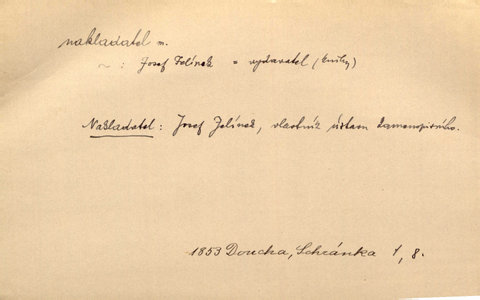 nakladatel m.
~ : Josef Jelínek = vydavatel (knihy)
Nakladatel: Josef Jelínek, vlastník ústavu kamenopisného.
1853 Doucha, Schránka 1, 8.